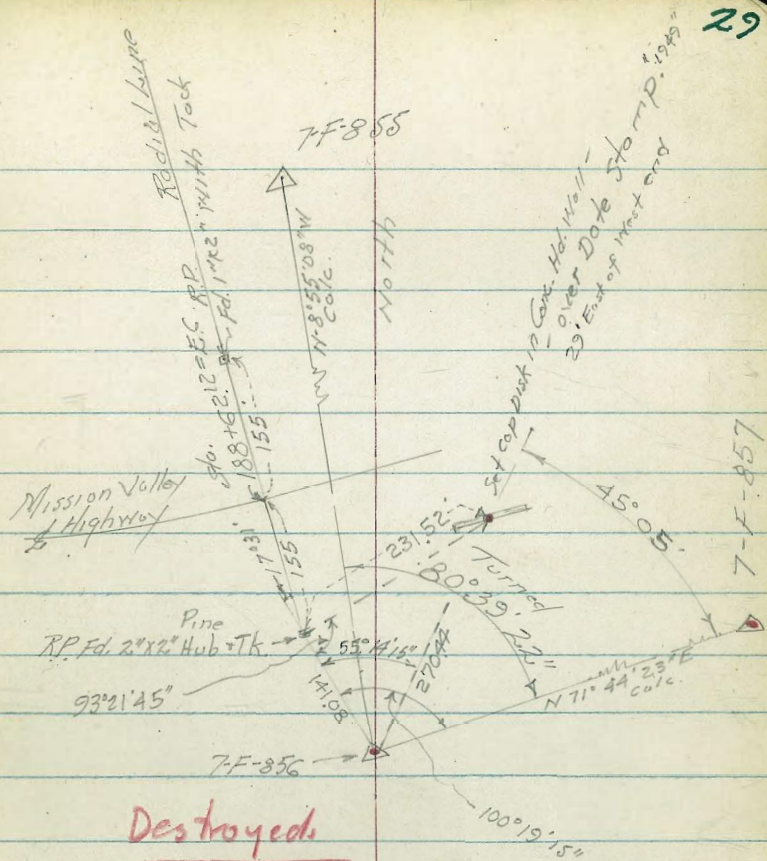 29
Radial Line
Sta. 188+62.12 = E.C. R.P.
Fd. 1"x2" with Tack
155'
17°31'
155
7-F-855
N-8°55'08"W
Calc.
North
Set Cap Disk in Conc. Hd. Wall -
- over Date Stamp. "1949"
29' East of West end
Mission Valley
Highway
231.52'
45°05'
7-F-857
Turned
80°39'22"
Pine
R.P. Fd. 2"x2" Hub + Tk.
55°14'15"
270.44
141.08
93°21'45"
N 71°44'23"E
calc.
7-F-856
100°19'15"
Destroyed.